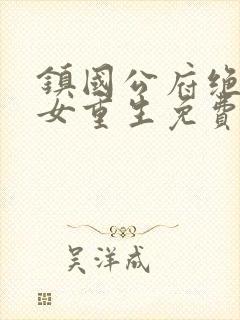 鎮國公府绝
女重生免費
吴洋成